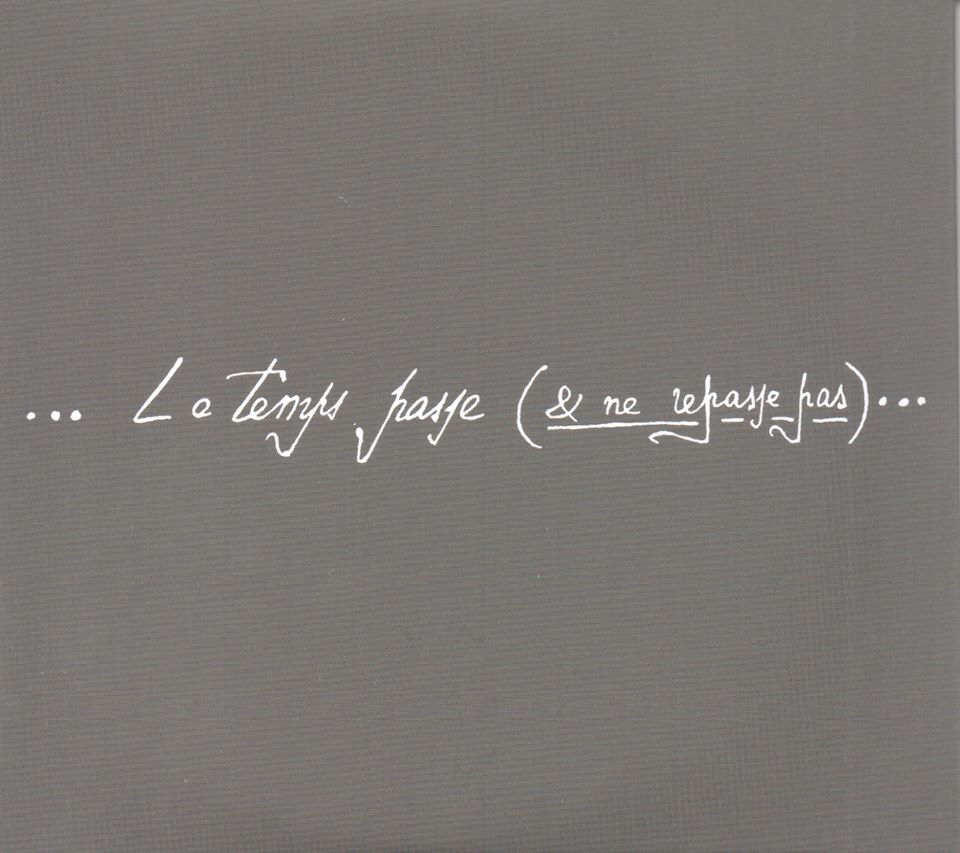 ... Le temps passe (& ne repasse pas)...